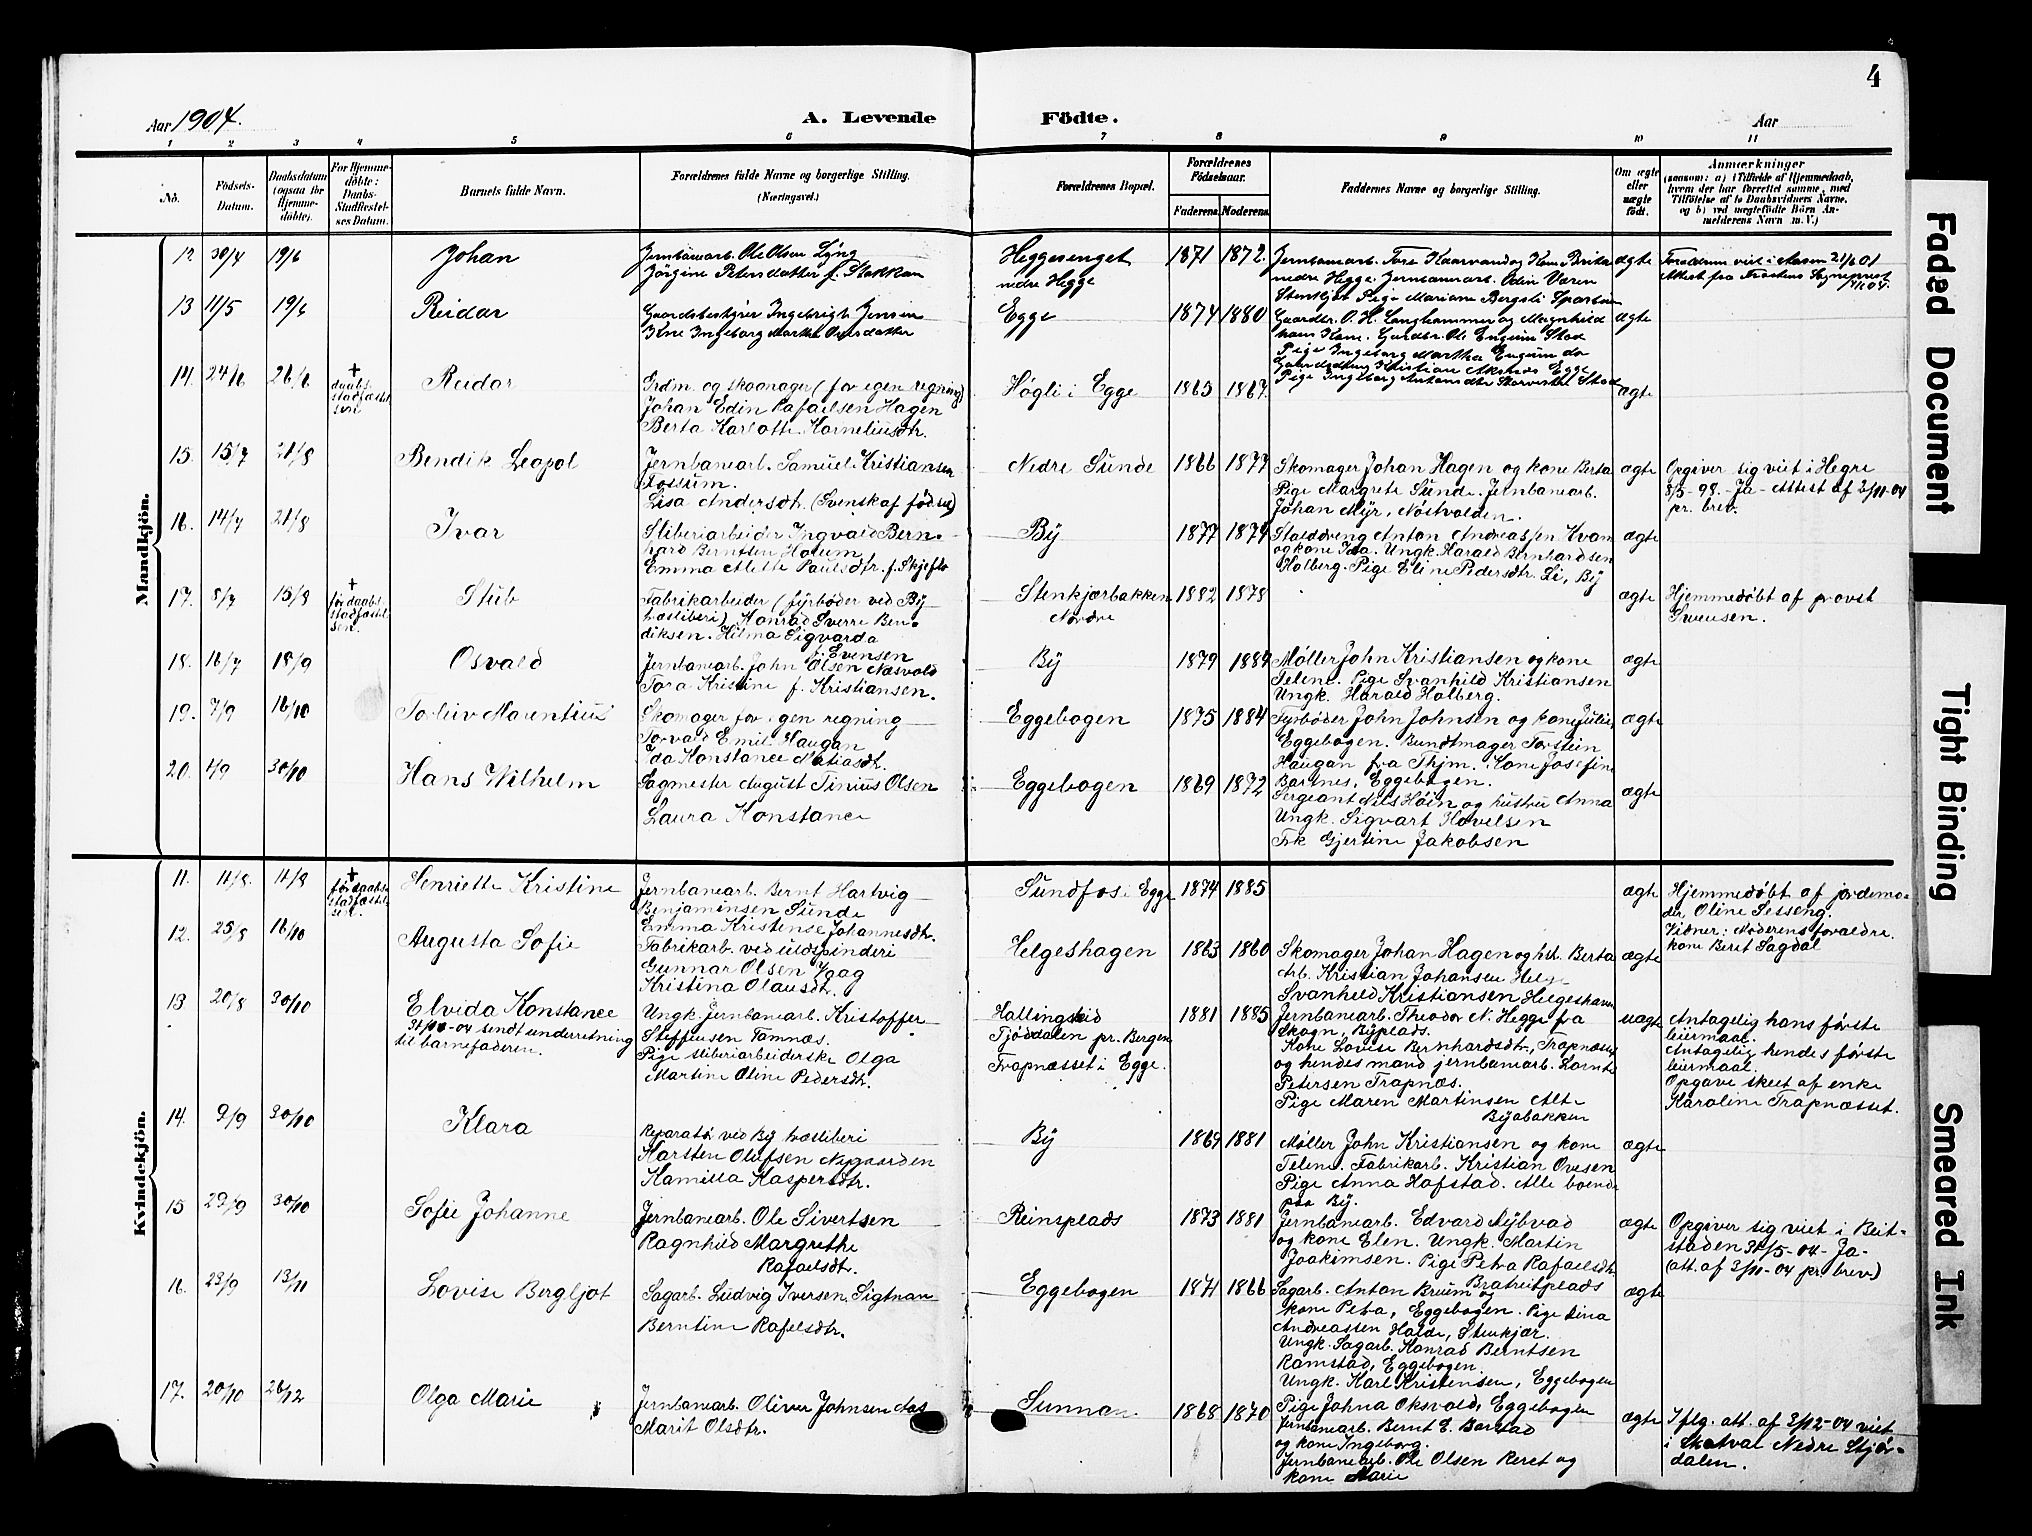 4
Aar 1904.
A. Levende Födte.
Aar
1 2 3 4 5 6 7 8 9 10 11
No.
Födsels-Datum.
Daabsdatum (ogsaa for Hjemme-döbte).
For Hjemme-döbte: Daabs-Stadfæstel-ses Datum.
Barnets fulde Navn.
Forældrenes fulde Navne og borgerlige Stilling.
(Næringsvei.)
Forældrenes Bopæl.
Forældrenes Födselsaar.
Faderens. Moderens.
Faddernes Navne og borgerlige Stilling.
Om ægte eller uægte födt.
Anmærkninger
(saasom: a) i Tilfælde af Hjemmedaab,
hvem der har forrettet samme, med
Tilföielse af to Daabsvidners Navne,
og b) ved uægtefödte Börn An-
melderens Navn m. V.)
Mandkjön.
12 30/4 19/6 Johan
Jernbanearb. Ole Olsen Lÿng
Jörgine Petersdatter f. Stokkan
Heggesenget
nedre Hegge
1871 1872.
nedre Hegge. Jernbanearb. Odin Væren
Stenkjær Pige Mariane Bergsli Sparbuen
ægte
13 11/5 19/6 Reidar
Gaardsbestyrer Ingebrigt Jensen
Kone Ingeborg Marthe Olusdatter
Egge
1874 1880
Gaardbr. O. H. Langhammer og Magnhild
hans Kone. Gardbr. Ole Engum Stod
Pige Ingeborg Martha Engum do
ægte
14. 24/6 26/6 + daabs-stadfæstel-sen Reidar
Grdm. og skomager (for egen regning)
Johan Edin Rafaelsen Hagen
Berta Karlotte Korneliusdtr.
Høgli i Egge
1863 1867.
ægte
15. 15/7 21/8 Bendik Leopol
Jernbanearb. Samuel Kristiansen
Fossum.
Lisa Andersdtr. (Svensk af fødsel)
Nedre Sunde
1866 1877
Skomager Johan Hagen og kone Berta
Pige Margrete Sunde. Jernbanearb.
Johan Mÿr, Nöstvolden.
ægte
Opgiver sig viet i Hegre
8/5-98. - Ja - Attest af 3/11-04
pr. brev.
16. 14/7 21/8 Ivar
Sliberiarbeider Ingvald Bern-
hard Berntsen Holum
Emma Mette Paulsdtr. f. Skjefte
Bÿ
1877 1874
Stalddreng Anton Andreassen Kvam
og kone Ida. Ungk. Harald Bernhardsen
Holberg. Pige Eline Pedersdtr. Li, Bÿ
ægte
17. 8/7 15/8 + før daabs-stadfæstel-sen. Stub
Fabrikarbeider (fÿrbøder ved Bÿ
træsliberi) Konrad Sverre Ben-
diksen. Hilma Sigvarda
f. Evensen
Stenkjærbakken
Nordre
1882 1878
ægte
Hjemmedøbt af provst
Svensen.
18. 16/7 18/9 Osvald
Jernbanearb. John Olsen Næsvold
Tora Kristine f. Kristiansen.
Bÿ
1879 1884
Møller John Kristiansen og kone
Telene. Pige Svanhild Kristiansen
Ungk. Harald Holberg.
ægte
19. 7/9 16/10 Torleiv Morentius
Skomager for egen regning
Torvald Emil Haugan
Ida Konstance Matiasdtr.
Eggebogen
1875 1884
Fÿrbøder John Johnsen og kone Julie,
Eggebogen. Bundtmager Torstein
Haugan fra Thjm. Kone Josefine
Bartnes, Eggebogen.
ægte
20. 4/9 30/10 Hans Wilhelm
Sagmester August Tinius Olsen
Laura Konstance
Eggebogen
1869 1872
Sergeant Nils Høin og hustru Anna
Ungk. Sigvart Hovelsen
Frk Gjertine Jakobsen
ægte
Kvindekjön.
11. 11/8. 11/8 + før daabs-stadfæstel-sen. Henriette Kristine
Jernbanearb. Bernt Hartvig
Benjaminsen Sunde
Emma Kristense Johannesdtr.
Sundfos i Egge
1874 1885
ægte
Hjemmedøbt af jordemo-
der Oline Sesseng.
Vidner: Moderens forældre.
kone Beret Sagdal
12. 25/8 16/10 Augusta Sofie
Fabrikarb. ved uldspinderi
Gunnar Olsen Vaag
Kristina Olausdtr.
Helgeshagen
1863 1860
Skomager Johan Hagen og hd. Berta
Arb. Kristian Johansen Helge
Svanheld Kristiansen Helgeshaven
ægte
13 20/8 30/10 Elvida Konstance
31/10-04 sendt underretning
til barnefaderen.
Ungk. Jernbanearb. Kristoffer
Steffensen Tømnæs.
Pige sliberiarbeiderske Olga
Martine Oline Pedersdtr.
Hallingskid
Fjøddalen pr. Bergen
Trapnæsset i Egge.
1881 1885
Jernbanearb. Theodor N. Hegge fra
Skogn, Bÿplads.
Kone Lovise Bernhardsdtr, Trapnæsset
og hendes mand jernbanearb. Lornts
Petersen Trapnæs.
Pige Maren Martinsen Alt-
Byabakken
uægte
Antagelig hans første
leiermaal.
Antagelig hendes første
leiermaal.
Opgave skeet af enke
Karoline Trapnæsset.
14. 9/9 30/10 Klara
Reparatør ved Bÿ træsliberi
Karsten Olufsen Nygaarden
Kamilla Kaspersdtr.
Bÿ
1869 1881
Møller John Kristiansen og kone
Telene. Fabrikarb. Kristian Ovesen
Pige Anna Hofstad. Alle boende
paa Bÿ.
ægte
15 29/9 30/10 Sofie Johanne
Jernbanearb. Ole Sivertsen
Ragnhild Margrethe
Rafaelsdtr.
Reinsplads
1873 1881
Jernbanearb. Edvard Nÿbvad
og kone Elen. Ungk. Martin
Joakimsen. Pige Petra Rafaelsdtr
Bratreitplads
ægte
Opgiver sig viet i Beit-
staden 31/5-04 - Ja -
(att. af 3/11-04 pr. brev)
16. 23/9 13/11 Lovise Bergljot
Sagarb. Ludvig Iversen Sigtnan
Berntine Rafelsdtr.
Eggebogen
1871 1866
Sagarb. Anton Bruem og
kone Petra, Eggebogen. Pige Lina
Andreassen Halde, Stenkjær.
Ungk. Sagarb. Konrad Berntsen
Ramstad, Eggebogen.
Ungk. Karl Kristensen, Eggebogen
Pige Johna Oksvold, Eggebogen
ægte
17. 20/10 26/12 Olga Marie
Jernbanearb. Oliver Johnsen Aas
Marit Olsdtr.
Sunnan.
1868 1870
Jernbanearb. Bernt E. Barstad
og kone Ingeborg.
Jernbanearb. Ole Olsen Reret og
kone Marie
ægte
Iflg. att. af 3/12-04 viet
i Skatval Nedre Stjør-
dalen.
Faded Document
Tight Binding
Smeared Ink